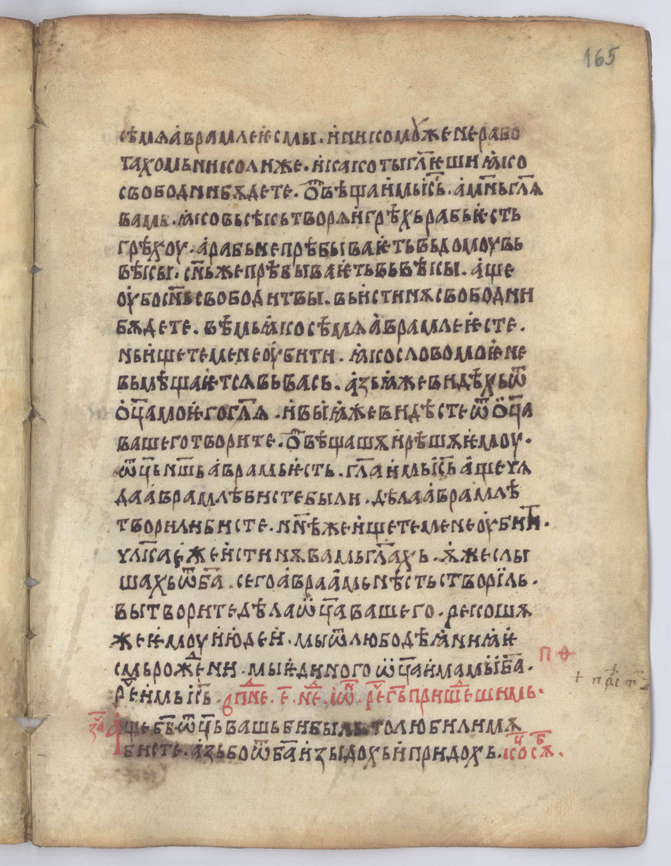 165
сѣмꙗ аврамле ѥсмы · и никомꙋже не рабо
тахомь николиже · и како ты гл҃ѥши ꙗко
свободни бѫдете · ѿвѣща имь і҃сь · аминь гл҃ѧ
вамь · ꙗко вьсѣкь творѧи грѣхь рабь ѥсть
грѣхоу · а рабь не прѣбываѥть вь домоу вь
вѣкы · сн҃ь же прѣбываѥть вь вѣкы · аще
оубо сн҃ь свободить вы · вь истинѫ свободни
бѫдете · вѣмь ꙗко сѣмѧ аврамле ѥсте ·
нь ищете мене оубити · ꙗко слово моѥ не
вьмѣщаѥтсѧ вь вась · азь ꙗже видѣхь ѿ
оц҃а моѥго гл҃ѧ · и вы ꙗже видѣсте ѿ оц҃а
вашего творите · ѿвѣщашѫ и рѣшѫ ѥмоу ·
ѡц҃ь нш҃ь аврамь ѥсть · гл҃а имь і҃сь аще чѧ
да аврамлѣ бисте были · дѣла аврамлѣ
творили бисте · нн҃ѣ же ищете мене оубити ·
чл҃ка еже истинѫ вамь гл҃ахь · ѫже слы
шахь ѿ ба҃ · сего авраамь нѣсть створиль ·
вы творите дѣла ѡц҃а вашего · рекошѧ
же ѥмоу июдеи · мы ѿ любодѣꙗниꙗ нѣ
смь рождени · мы ѥдиного ѡц҃а имамы ба҃ ·
п ѳ
рече имь і҃сь
аще бѣ ѡц҃ь вашь би быль то любили мѧ
бисте · азь бо ѿ ба҃ изыдохь и придохь ·